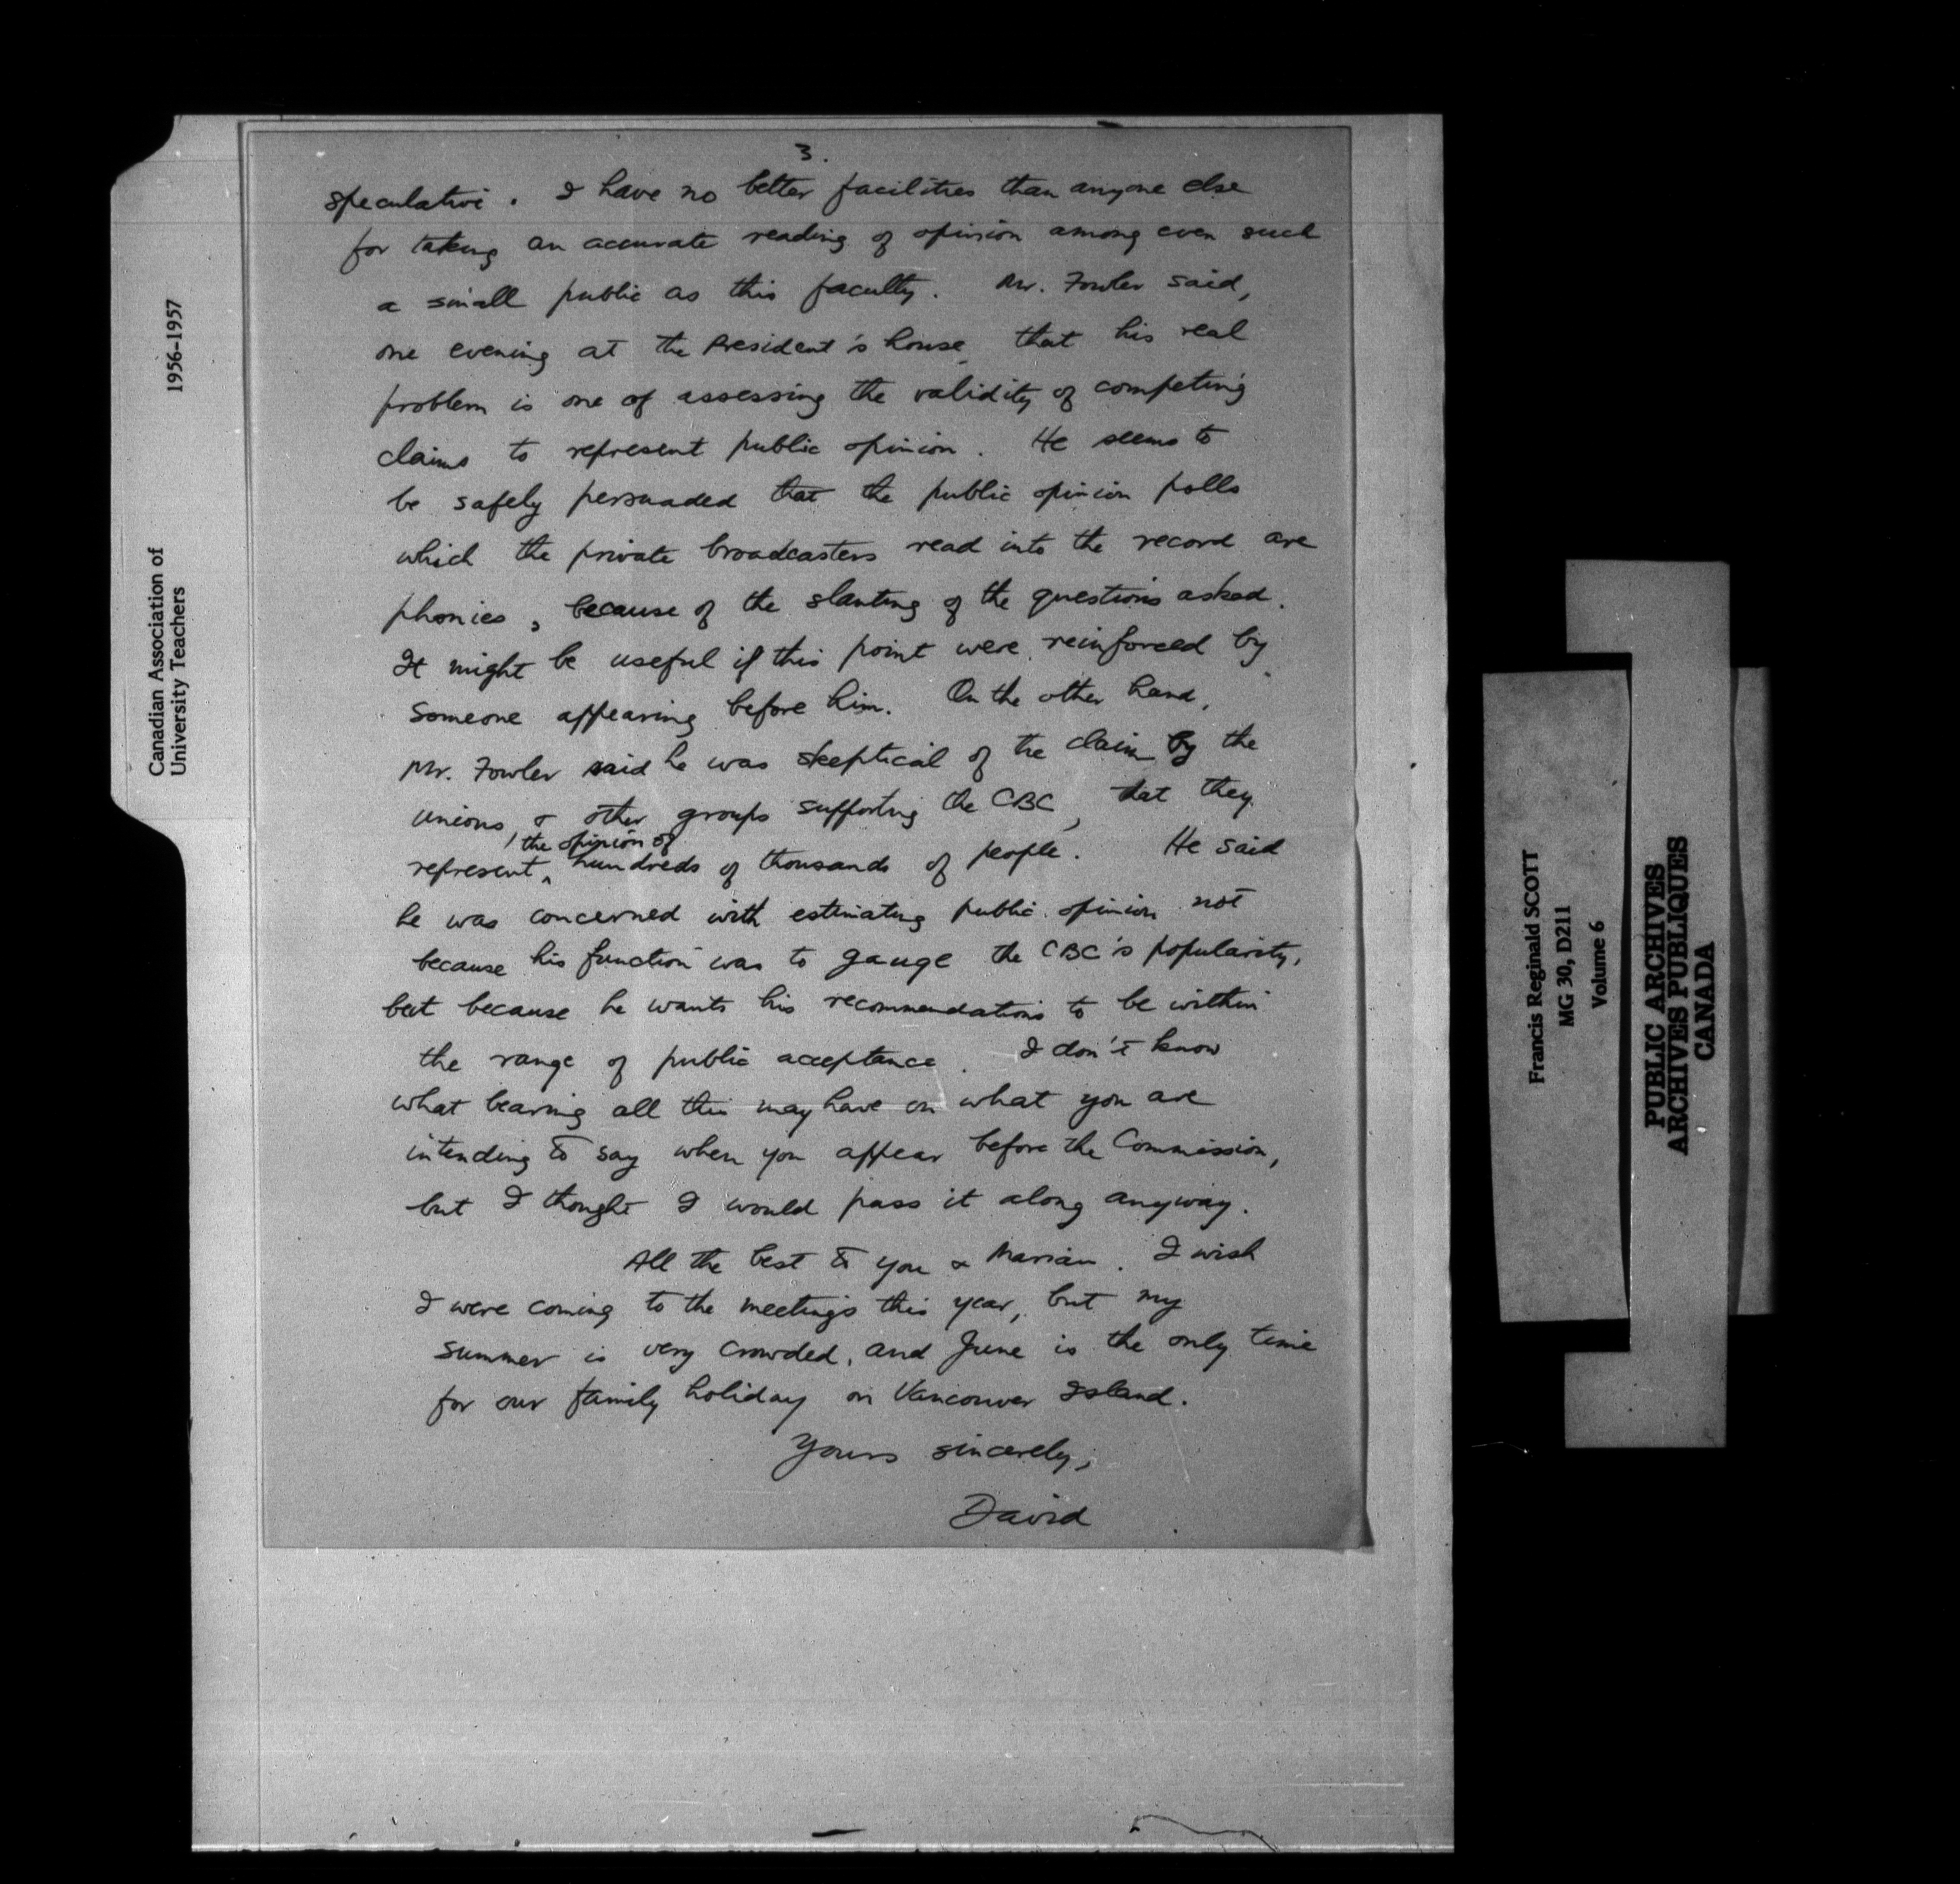 3.
speculative. I have no better facilities than anyone else
for taking an accurate reading of opinion among even such
a small public as this faculty. Mr. Fowler said,
one evening at the President's house, that his real
problem is one of assessing the validity of competing
claims to represent public opinion. He seems to
be safely persuaded that the public opinion polls
which the private broadcasters read into the record are
phonies, because of the slanting of the questions asked.
It might be useful if this point were reinforced by
someone appearing before him. On the other hand,
Mr. Fowler said he was skeptical of the claim by the
unions, & other groups supporting the CBC, that they
the opinion of
represent hundreds of thousands of people. He said
he was concerned with estimating public opinion not
because his function was to gauge the CBC's popularity,
but because he wants his recommendations to be within
the range of public acceptance. I don't know
what bearing all this may have on what you are
intending to say when you appear before the Commission,
but I thought I would pass it along anyway.
All the best to you & Marian. I wish
I were coming to the meetings this year, but my
summer is very crowded, and June is the only time
for our family holiday on Vancouver Island.
Yours sincerely,
David
Canadian Association of
University Teachers
1956-1957
Francis Reginald SCOTT
MG 30, D211
Volume 6
PUBLIC ARCHIVES
ARCHIVES PUBLIQUES
CANADA